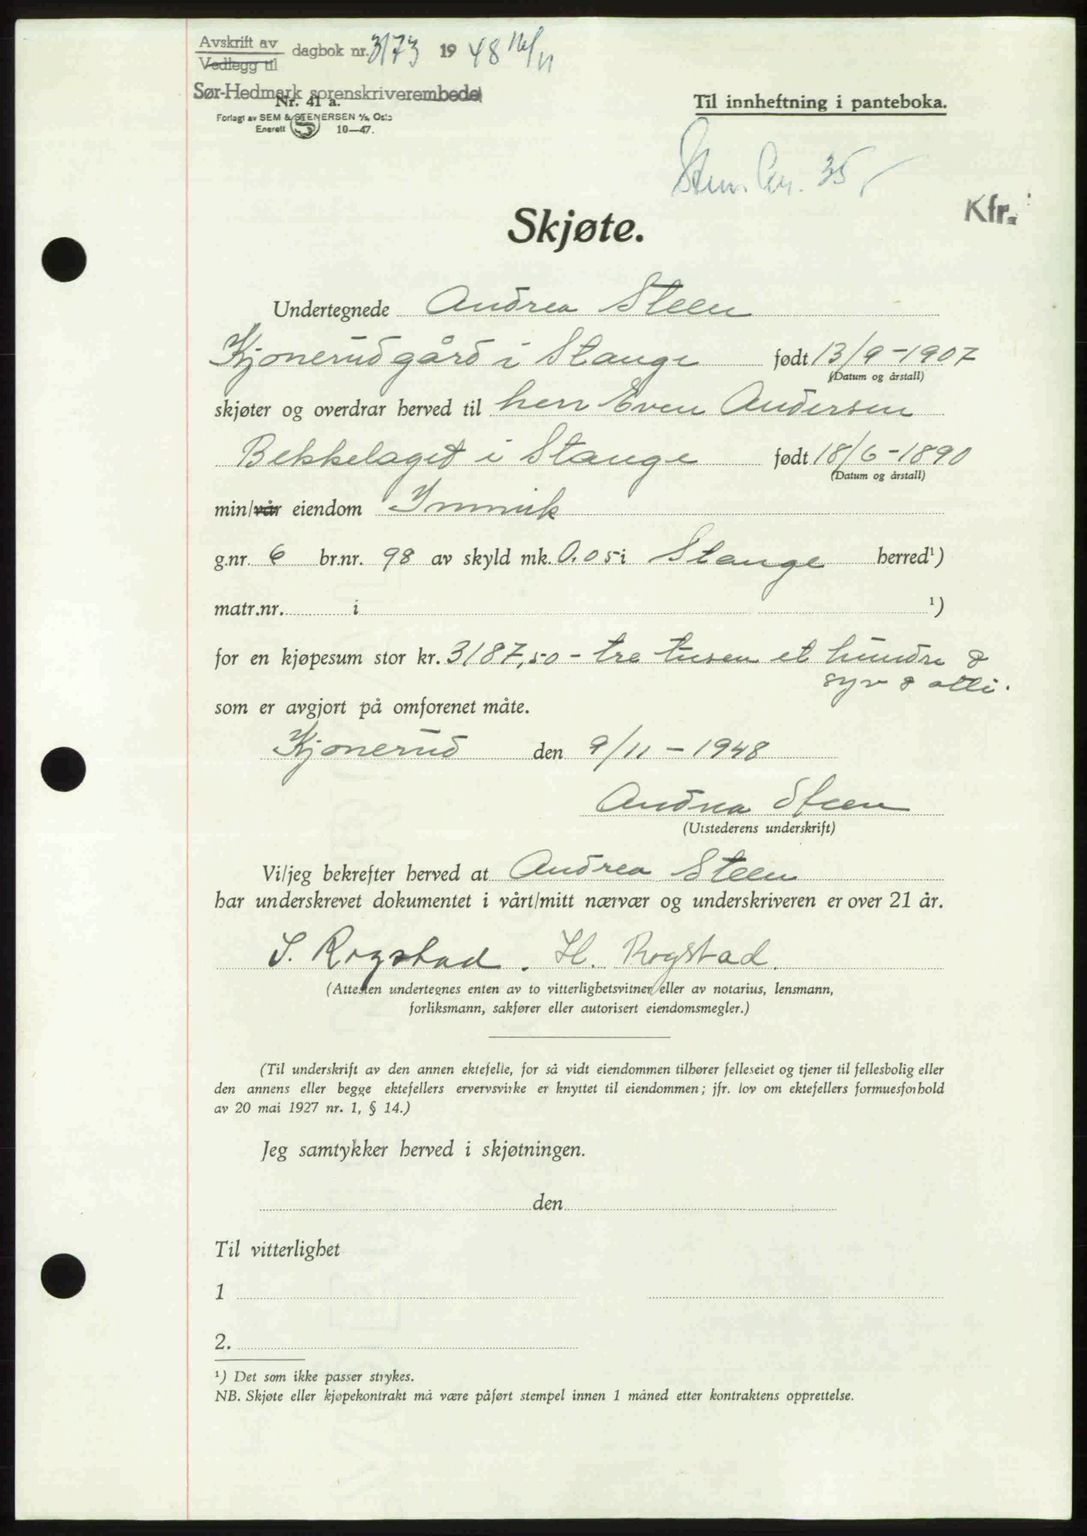 Avskrift av
Vedlegg til
dagbok nr. 3173 1948 16/11
Sør-Hedmark sorenskriverembede
Nr. 41 a.
Forlagt av SEM & STENERSEN A/S, Oslo
Enerett S 10—47.
Til innheftning i panteboka.
35
Kfr.
Skjøte.
Undertegnede Andrea Steen
Kjonerud gård i Stange født 13/9-1907
(Datum og årstall)
skjøter og overdrar herved til herr Even Andersen
Bekkelaget i Stange født 18/6-1890
(Datum og årstall)
min/vår eiendom
g.nr. 6 br.nr. 98 av skyld mk. 0.05 i Stange herred¹)
matr.nr. i ¹)
for en kjøpesum stor kr. 3187,50 - tre tusen et hundre &
syv & otti.
som er avgjort på omforenet måte.
Kjonerud den 9/11-1948
Andrea Steen
(Utstederens underskrift)
Vi/jeg bekrefter herved at Andrea Steen
har underskrevet dokumentet i vårt/mitt nærvær og underskriveren er over 21 år.
S. Rogstad. H. Rogstad.
(Attesten undertegnes enten av to vitterlighetsvitner eller av notarius, lensmann,
forliksmann, sakfører eller autorisert eiendomsmegler.)
(Til underskrift av den annen ektefelle, for så vidt eiendommen tilhører felleseiet og tjener til fellesbolig eller
den annens eller begge ektefellers ervervsvirke er knyttet til eiendommen; jfr. lov om ektefellers formuesforhold
av 20 mai 1927 nr. 1, § 14.)
Jeg samtykker herved i skjøtningen.
den
Til vitterlighet
1
2.
¹) Det som ikke passer strykes.
NB. Skjøte eller kjøpekontrakt må være påført stempel innen 1 måned etter kontraktens opprettelse.